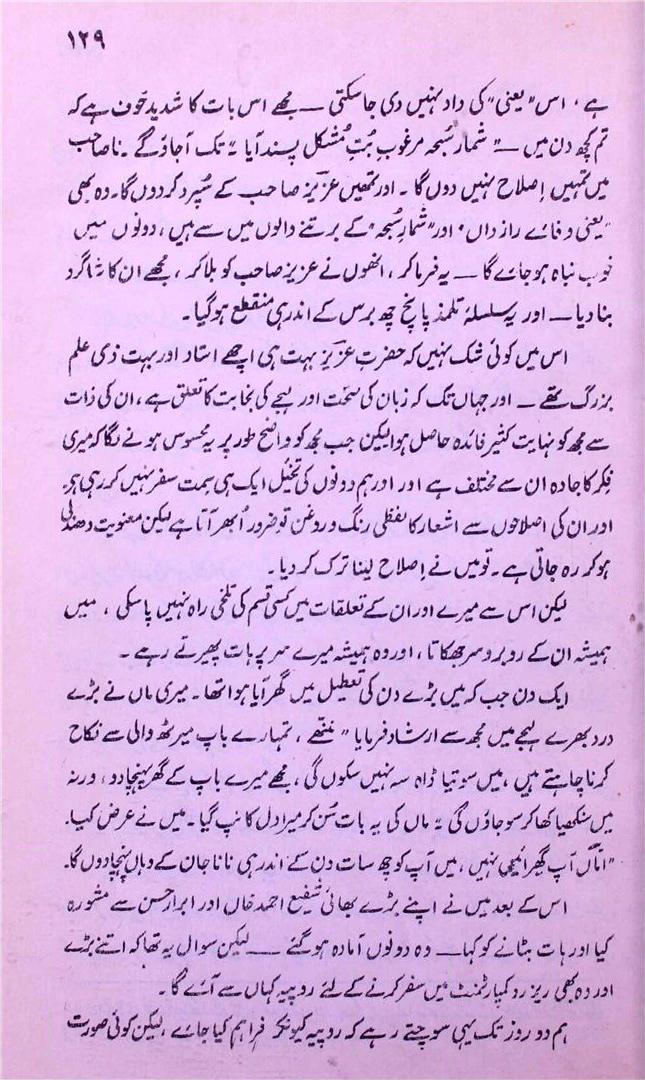 ۱۲۹
ہے ، اس "یعنی" کی داد نہیں دی جاسکتی — مجھے اس بات کا شدید خوف ہے کہ
تم کچھ دن میں — "شمار سُبحہ مرغوبِ بُتِ مُشکل پسند آیا" تک آجاؤ گے ۔ نا صاحب
میں تمہیں اِصلاح نہیں دوں گا ۔ اور تمھیں عزیزؔ صاحب کے سُپرد کر دوں گا۔ وہ بھی
"یعنی وفائے راز داں" اور "شمارِ سُبحہ" کے برتنے والوں میں سے ہیں ، دونوں میں
خوب نباہ ہو جائے گا — یہ فرما کر ، انھوں نے عزیز صاحب کو بلا کر ، مجھے ان کا شاگرد
بنا دیا — اور یہ سلسلۂ تلمذ پانچ چھ برس کے اندر ہی منقطع ہو گیا ۔
اس میں کوئی شک نہیں کہ حضرت عزیزؔ بہت ہی اچھے استاد اور بہت ذی علم
بزرگ تھے — اور جہاں تک کہ زبان کی صحّت اور لہجے کی نجابت کا تعلق ہے ، ان کی ذات
سے مجھ کو نہایت کثیر فائدہ حاصل ہوا لیکن جب مجھ کو واضح طور پر یہ محسوس ہونے لگا کہ میری
فِکر کا جادہ ان سے مختلف ہے اور اور ہم دونوں کی تخیُّل ایک ہی سِمت سفر نہیں کر رہی ہو
اور ان کی اصلاحوں سے اشعار کا لفظی رنگ و روغن تو ضرور اُبھر آتا ہے لیکن معنویت دھندلی
ہو کر رہ جاتی ہے ۔ تو میں نے اِصلاح لینا ترک کر دیا ۔
لیکن اس سے میرے اور ان کے تعلقات میں کسی قسم کی تلخی راہ نہیں پا سکی ، میں
ہمیشہ ان کے روبرو سر جھکاتا ، اور وہ ہمیشہ میرے سر پر ہات پھیرتے رہے ۔
ایک دن جب کہ میں بڑے دن کی تعطیل میں گھر آیا ہوا تھا ۔ میری ماں نے بڑے
درد بھرے لہجے میں مجھ سے ارشاد فرمایا " ننھے ، تمہارے باپ میرٹھ والی سے نکاح
کرنا چاہتے ہیں ، میں سوتیا ڈاہ سہ نہیں سکوں گی ، مجھے میرے باپ کے گھر پہنچا دو ، ورنہ
میں سنکھیا کھا کر سو جاؤں گی" ماں کی یہ بات سُن کر میرا دل کانپ گیا ۔ میں نے عرض کیا۔
"امّاں آپ گھبرائیے نہیں ، میں آپ کو چھ سات دن کے اندر ہی نانا جان کے وہاں پہنچا دوں گا۔
اس کے بعد میں نے اپنے بڑے بھائی شفیع احمد خاں اور ابرار حسن سے مشورہ
کیا اور ہات بٹانے کو کہا — وہ دونوں آمادہ ہو گئے — لیکن سوال یہ تھا کہ اتنے بڑے
اور وہ بھی ریزرو کمپارٹمنٹ میں سفر کرنے کے لئے روپیہ کہاں سے آئے گا ۔
ہم دو روز تک یہی سوچتے رہے کہ روپیہ کیونکر فراہم کیا جائے ، لیکن کوئی صورت